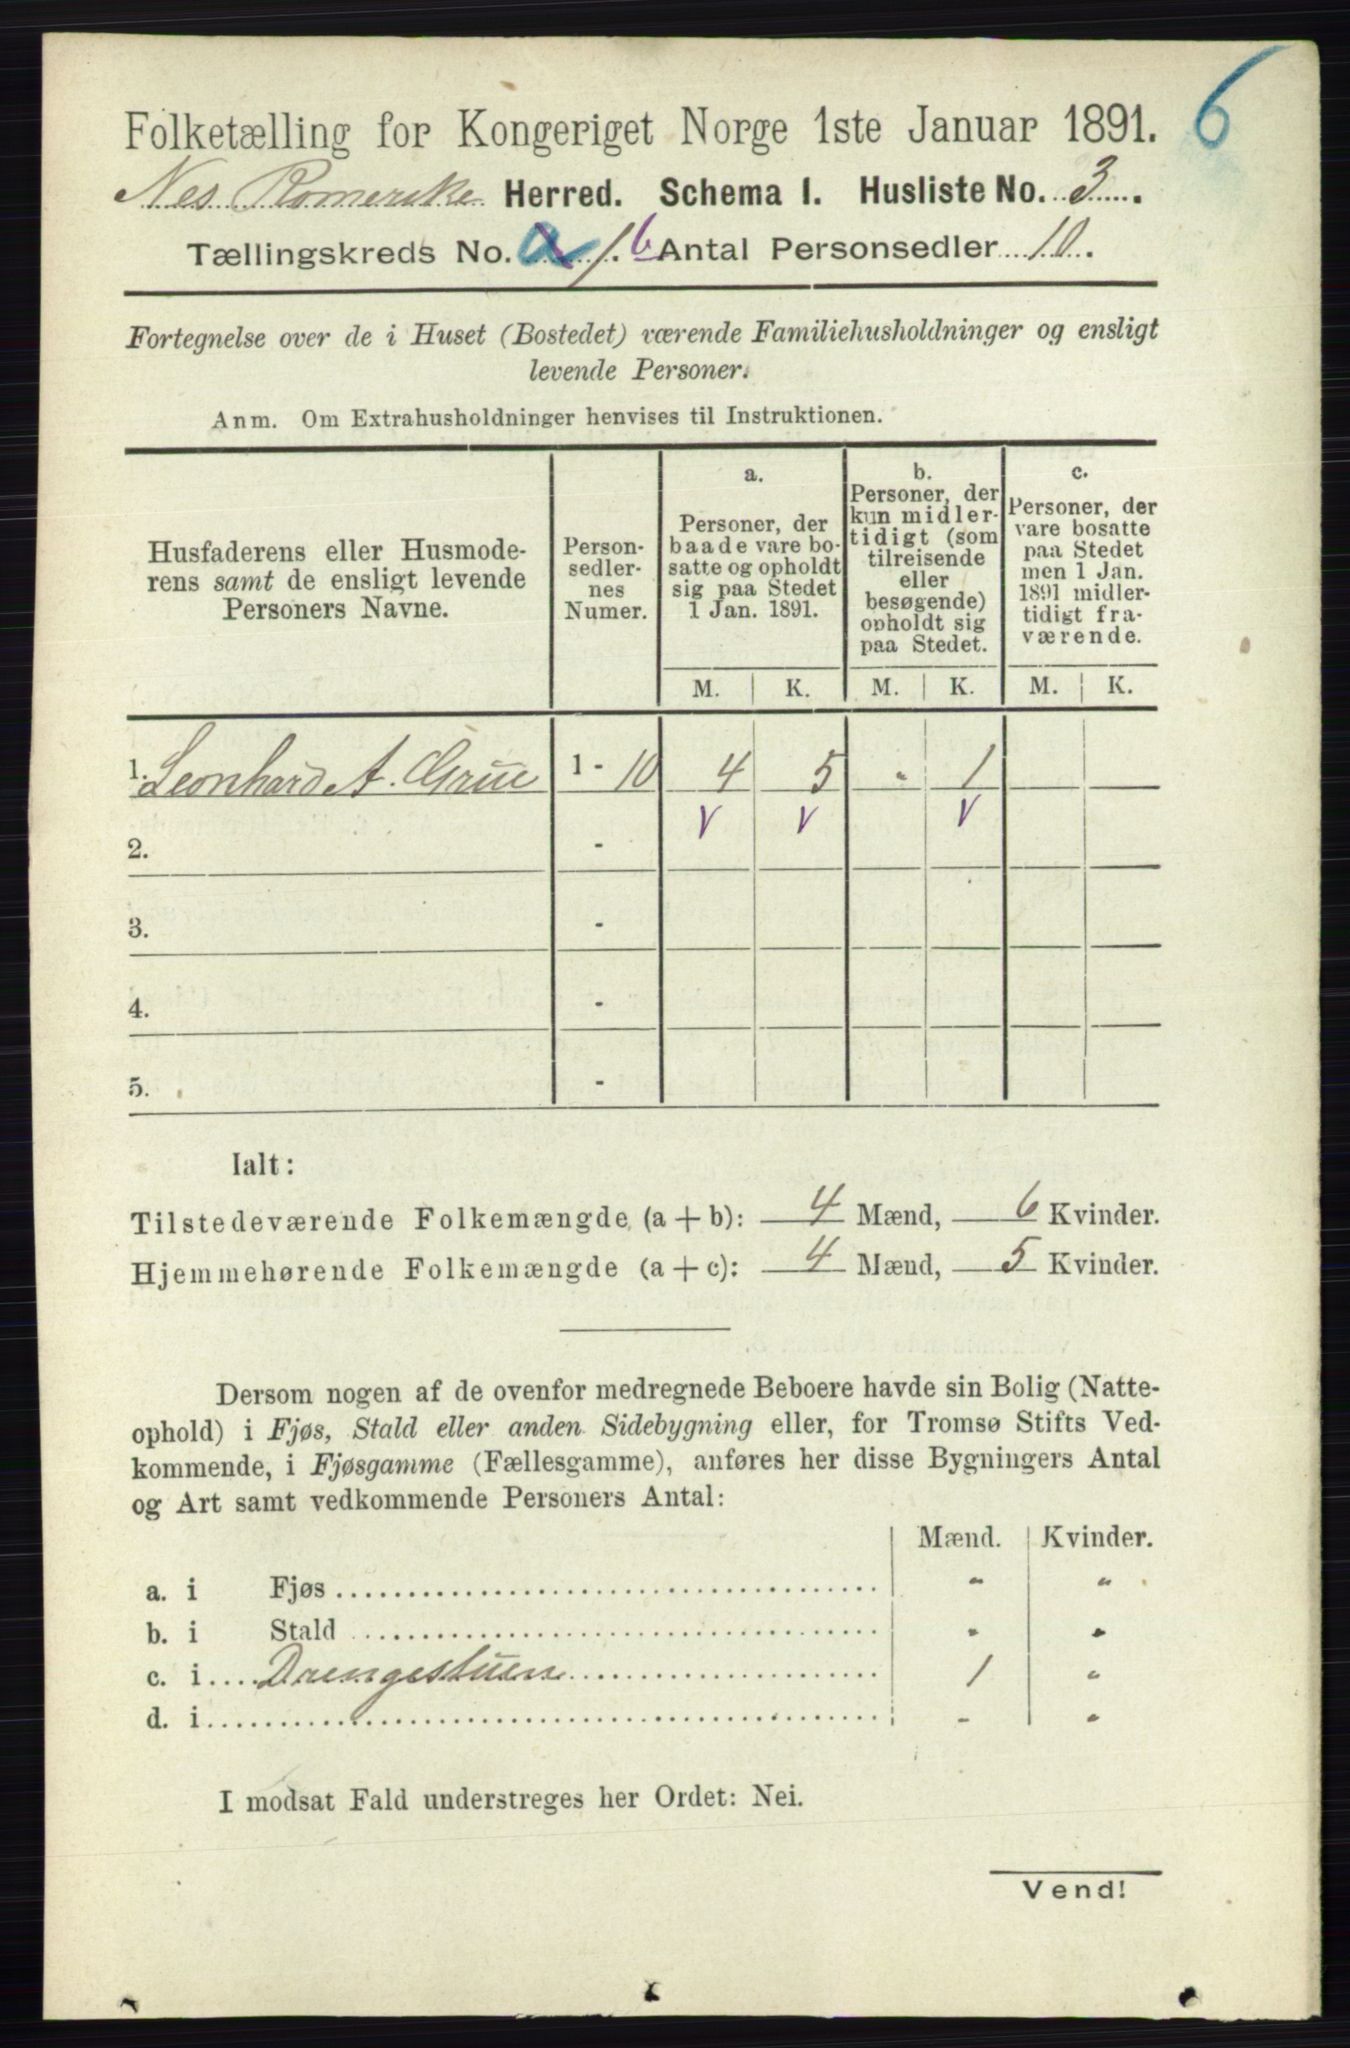 6
Folketælling for Kongeriget Norge 1ste Januar 1891.
Nes Romerike Herred. Schema 1. Husliste No. 3.
Tællingskreds No. a 1. b Antal Personsedler 10.
Fortegnelse over de i Huset (Bostedet) værende Familiehusholdninger og ensligt
levende Personer.
Anm. Om Extrahusholdninger henvises til Instruktionen.
Husfaderens eller Husmode-
rens samt de ensligt levende
Personers Navne.
Person-
sedler-
nes
Numer.
a.
Personer, der
baade vare bo-
satte og opholdt
sig paa Stedet
1 Jan. 1891.
b.
Personer, der
kun midler-
tidigt (som
tilreisende
eller
besøgende)
opholdt sig
paa Stedet.
c.
Personer, der
vare bosatte
paa Stedet
men 1 Jan.
1891 midler-
tidigt fra-
værende.
M. K. M. K. M. K.
1. Leonhard A. Grue 1 - 10 4 5 " 1
V V V
2. -
3. -
4. -
5. -
Ialt:
Tilstedeværende Folkemængde (a + b): 4 Mænd, 6 Kvinder.
Hjemmehørende Folkemængde (a + c): 4 Mænd, 5 Kvinder.
Dersom nogen af de ovenfor medregnede Beboere havde sin Bolig (Natte-
ophold) i Fjøs, Stald eller anden Sidebygning eller, for Tromsø Stifts Ved-
kommende, i Fjøsgamme (Fællesgamme), anføres her disse Bygningers Antal
og Art samt vedkommende Personers Antal:
Mænd. Kvinder.
a. i Fjøs " "
b. i Stald " "
c. i Drengestuen 1 "
d. i " "
I modsat Fald understreges her Ordet: Nei.
Vend!